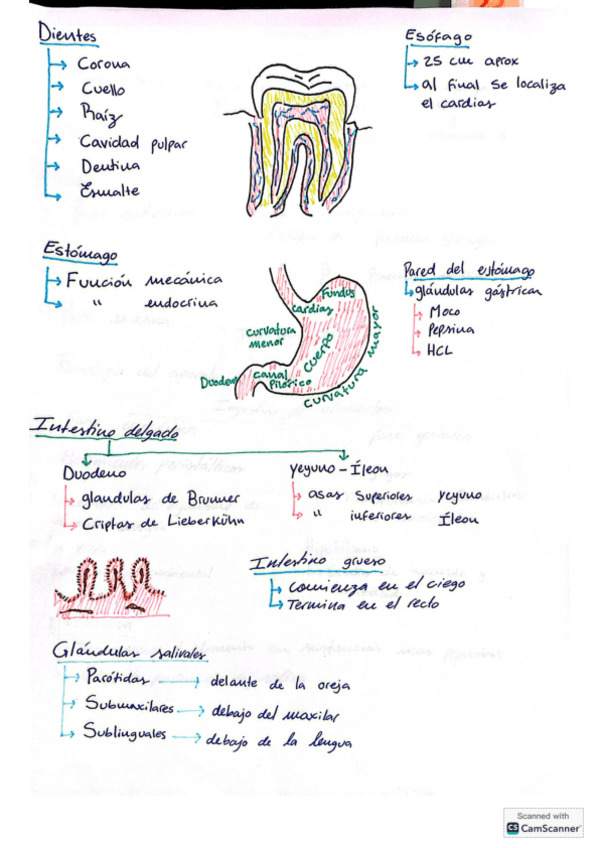 Dientes
Corona
Cuello
Raíz
Cavidad pulpar
Dentina
Esmalte
Esófago
25 cm aprox
al final se localiza
el cardias
Estómago
Función mecánica
" endocrina
Fundus
cardias
curvatura
menor
Cuerpo
curvatura mayor
Duodeno
Canal
Pilórico
Pared del estómago
glándulas gástricas
Moco
Pepsina
HCL
Intestino delgado
Duodeno
glandulas de Brunner
Criptas de Lieberkühn
yeyuno - Íleon
asas superiores yeyuno
" inferiores Íleon
Intestino grueso
comienza en el ciego
Termina en el recto
Glándulas salivales
Parótidas delante de la oreja
Submaxilares debajo del maxilar
Sublinguales debajo de la lengua
Scanned with
CS CamScanner